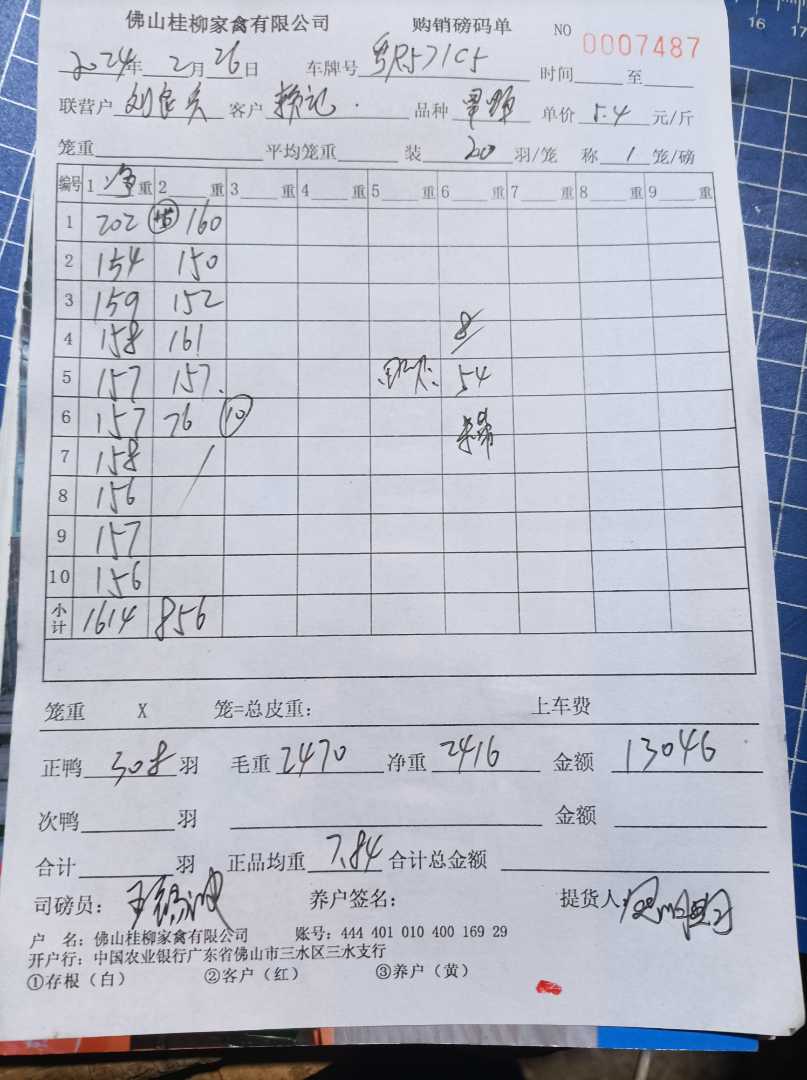 佛山桂柳家禽有限公司 购销磅码单 NO 0007487
2024年2月26日 车牌号 粤R571C5 时间 至
联营户 客户 赖记 品种 单价 5.4 元/斤
笼重 平均笼重 装 20 羽/笼 称 1 笼/磅
编号 1 净 重 2 重 3 重 4 重 5 重 6 重 7 重 8 重 9 重
1 202 160
2 154 150
3 159 152
4 158 161 8
5 157 157 54
6 157 76 10
7 158 /
8 156
9 157
10 156
小计 1614 856
笼重 X 笼=总皮重: 上车费
正鸭 308 羽 毛重 2470 净重 2416 金额 13046
次鸭 羽 金额
合计 羽 正品均重 7.84 合计总金额
司磅员: 养户签名: 提货人:
户 名: 佛山桂柳家禽有限公司 账号: 444 401 010 400 169 29
开户行: 中国农业银行广东省佛山市三水区三水支行
①存根(白) ②客户(红) ③养户(黄)
16 17